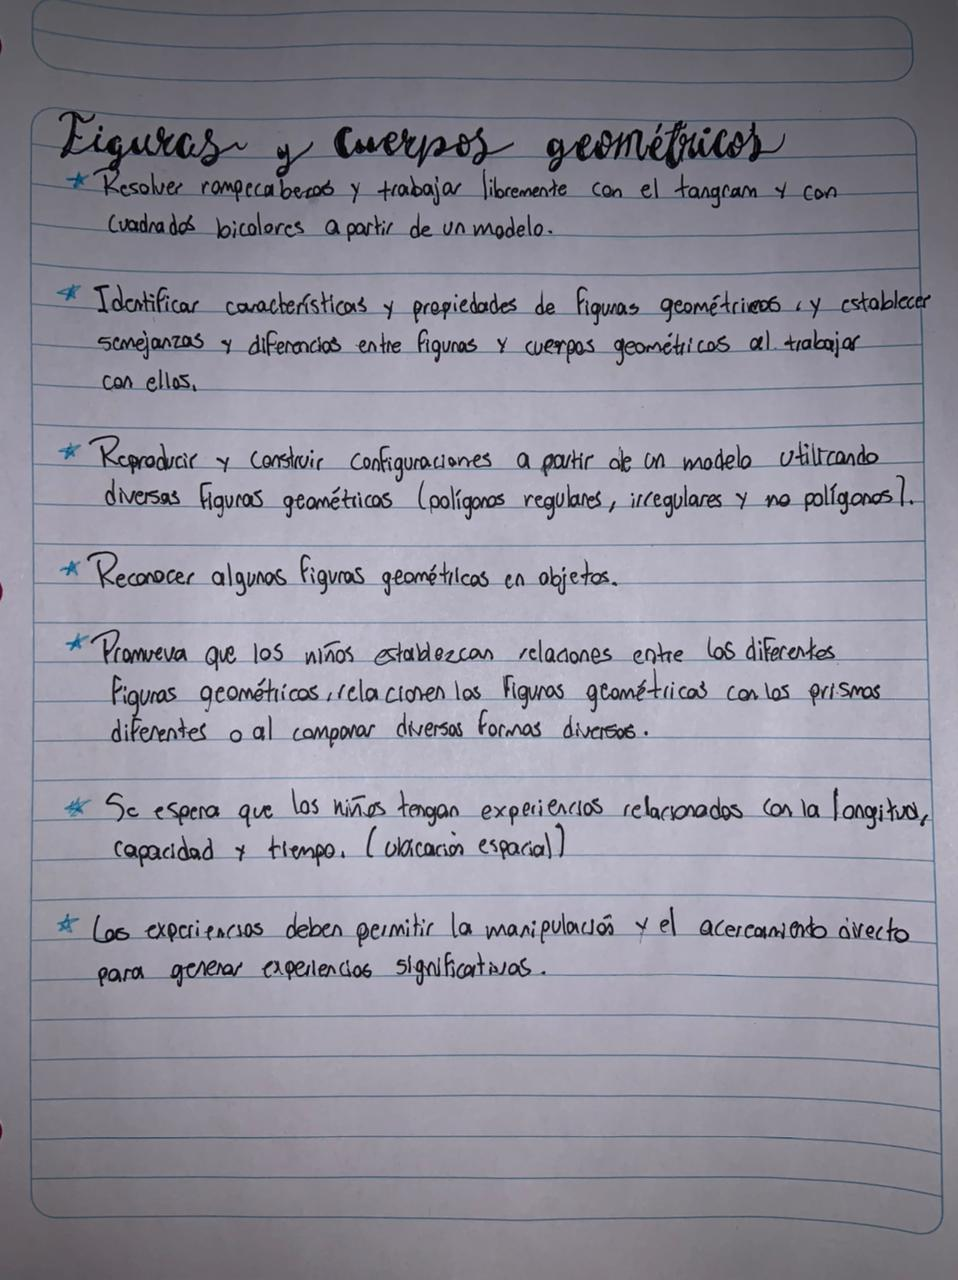 Figuras y cuerpos geométricos
* Resolver rompecabezas y trabajar libremente con el tangram y con
cuadrados bicolores a partir de un modelo.
* Identificar características y propiedades de figuras geométricas, y establecer
semejanzas y diferencias entre figuras y cuerpos geométricos al trabajar
con ellos.
* Reproducir y construir configuraciones a partir de un modelo utilizando
diversas figuras geométricas (polígonos regulares, irregulares y no polígonos).
* Reconocer algunas figuras geométricas en objetos.
* Promueva que los niños establezcan relaciones entre las diferentes
figuras geométricas, relacionen las figuras geométricas con los prismas
diferentes o al comparar diversas formas diversas.
* Se espera que los niños tengan experiencias relacionados con la longitud,
capacidad y tiempo. (ubicación espacial)
* Las experiencias deben permitir la manipulación y el acercamiento directo
para generar experiencias significativas.